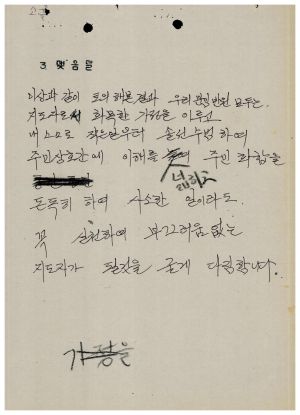 3. 맺음말
이상과 같이 토의 해본 결과 우리 분임반원 모두는.
지도자로서 화목한 가정을 이루고
내 스스로 작은일부터 솔선수범하여
주민상호간에 이해를 넓히고 주민 화합을
돈독히 하여 사소한 일이라도.
꼭 실천하여 부끄러움 없는
지도자가 될것을 굳게 다짐합니다.
가정을